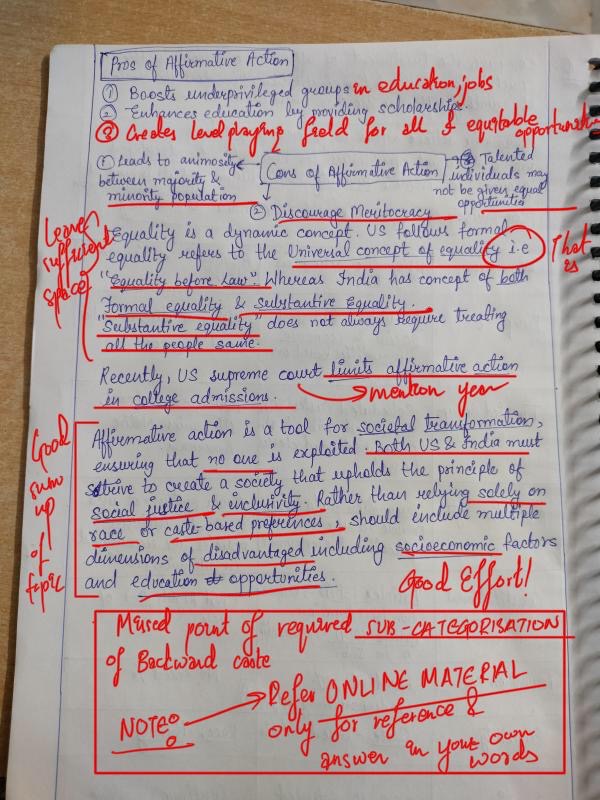 Pros of Affirmative Action
① Boosts underprivileged groups in education, jobs
② Enhances education by providing scholarships.
③ Creates level playing field for all & equitable opportunities
① Leads to animosity between majority & minority population
Cons of Affirmative Action
③ Talented individuals may not be given equal opportunities
② Discourage Meritocracy
Leave sufficient space
Equality is a dynamic concept. US follows formal
equality refers to the Universal concept of equality i.e
That is
"Equality before Law". Whereas India has concept of both
Formal equality & Substantive Equality.
"Substantive equality" does not always require treating
all the people same.
Recently, US supreme court limits affirmative action
in college admissions.
mention year
Good sum up of topic
Affirmative action is a tool for societal transformation,
ensuring that no one is exploited. Both US & India must
strive to create a society that upholds the principle of
social justice & inclusivity. Rather than relying solely on
race or caste-based preferences, should include multiple
dimensions of disadvantaged including socioeconomic factors
and education opportunities.
Good Effort!
Missed point of required SUB-CATEGORISATION
of Backward caste
NOTE:
Refer ONLINE MATERIAL
only for reference &
answer in your own
words